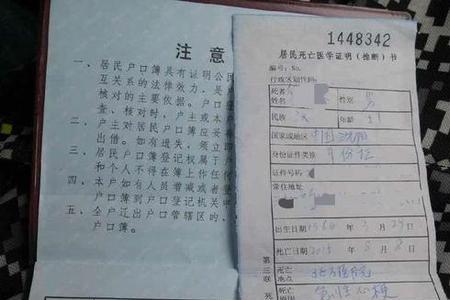 注意
一、居民户口簿具有证明公民
互关系的法律效力，是
核对的主要依据。户口
查、核对时，户主或本户
二、户主对居民户口簿应妥善
出借。如有遗失，须立即
三、居民户口簿登记权属于户
和个人不得在簿上作任何
四、本户如有人员增减或者登
户口簿到户口登记机关申
五、全户迁出户口管辖区的，
户口簿。
1448342
居民死亡医学证明（推断）书
编号：No.
行政区划代码：
死者
姓名
性别 男
民族 汉
年龄 51
国家或地区 中国沈阳
身份证件类别 身份证
证件号码
常住地址
出生日期 1964 年 3 月 29
死亡日期 2015 年 8 月 8
第三联
死亡
地点
医院
死亡
急性心梗